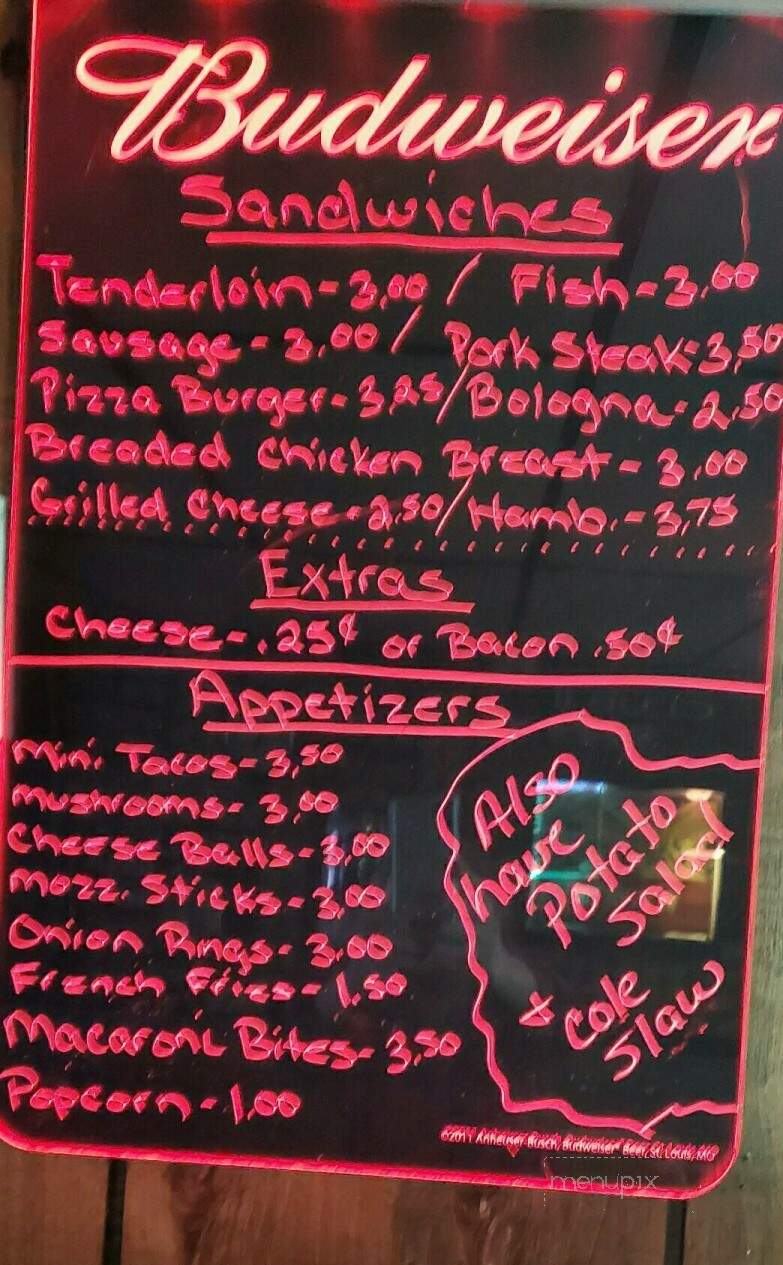 Budweiser
Sandwiches
Tenderloin - 3.00 / Fish - 3.00
Sausage - 3.00 / Pork Steak - 3.50
Pizza Burger - 3.25 / Bologna - 2.50
Breaded Chicken Breast - 3.00
Grilled Cheese - 2.50 / Hamb. - 3.75
Extras
Cheese - .25¢ or Bacon .50¢
Appetizers
Mini Tacos - 3.50
Mushrooms - 3.00
Cheese Balls - 3.00
Mozz. Sticks - 3.00
Onion Rings - 3.00
French Fries - 1.50
Macaroni Bites - 3.50
Popcorn - 1.00
Also
have
Potato
Salad
+ Cole
Slaw
©2011 Anheuser-Busch, Budweiser® Beer, St. Louis, MO
menupix